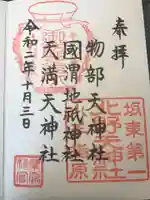 奉拝
坂東第一
北野天神社
物部天神社
國渭地祇神社
天満天神社
令和二年十月三日